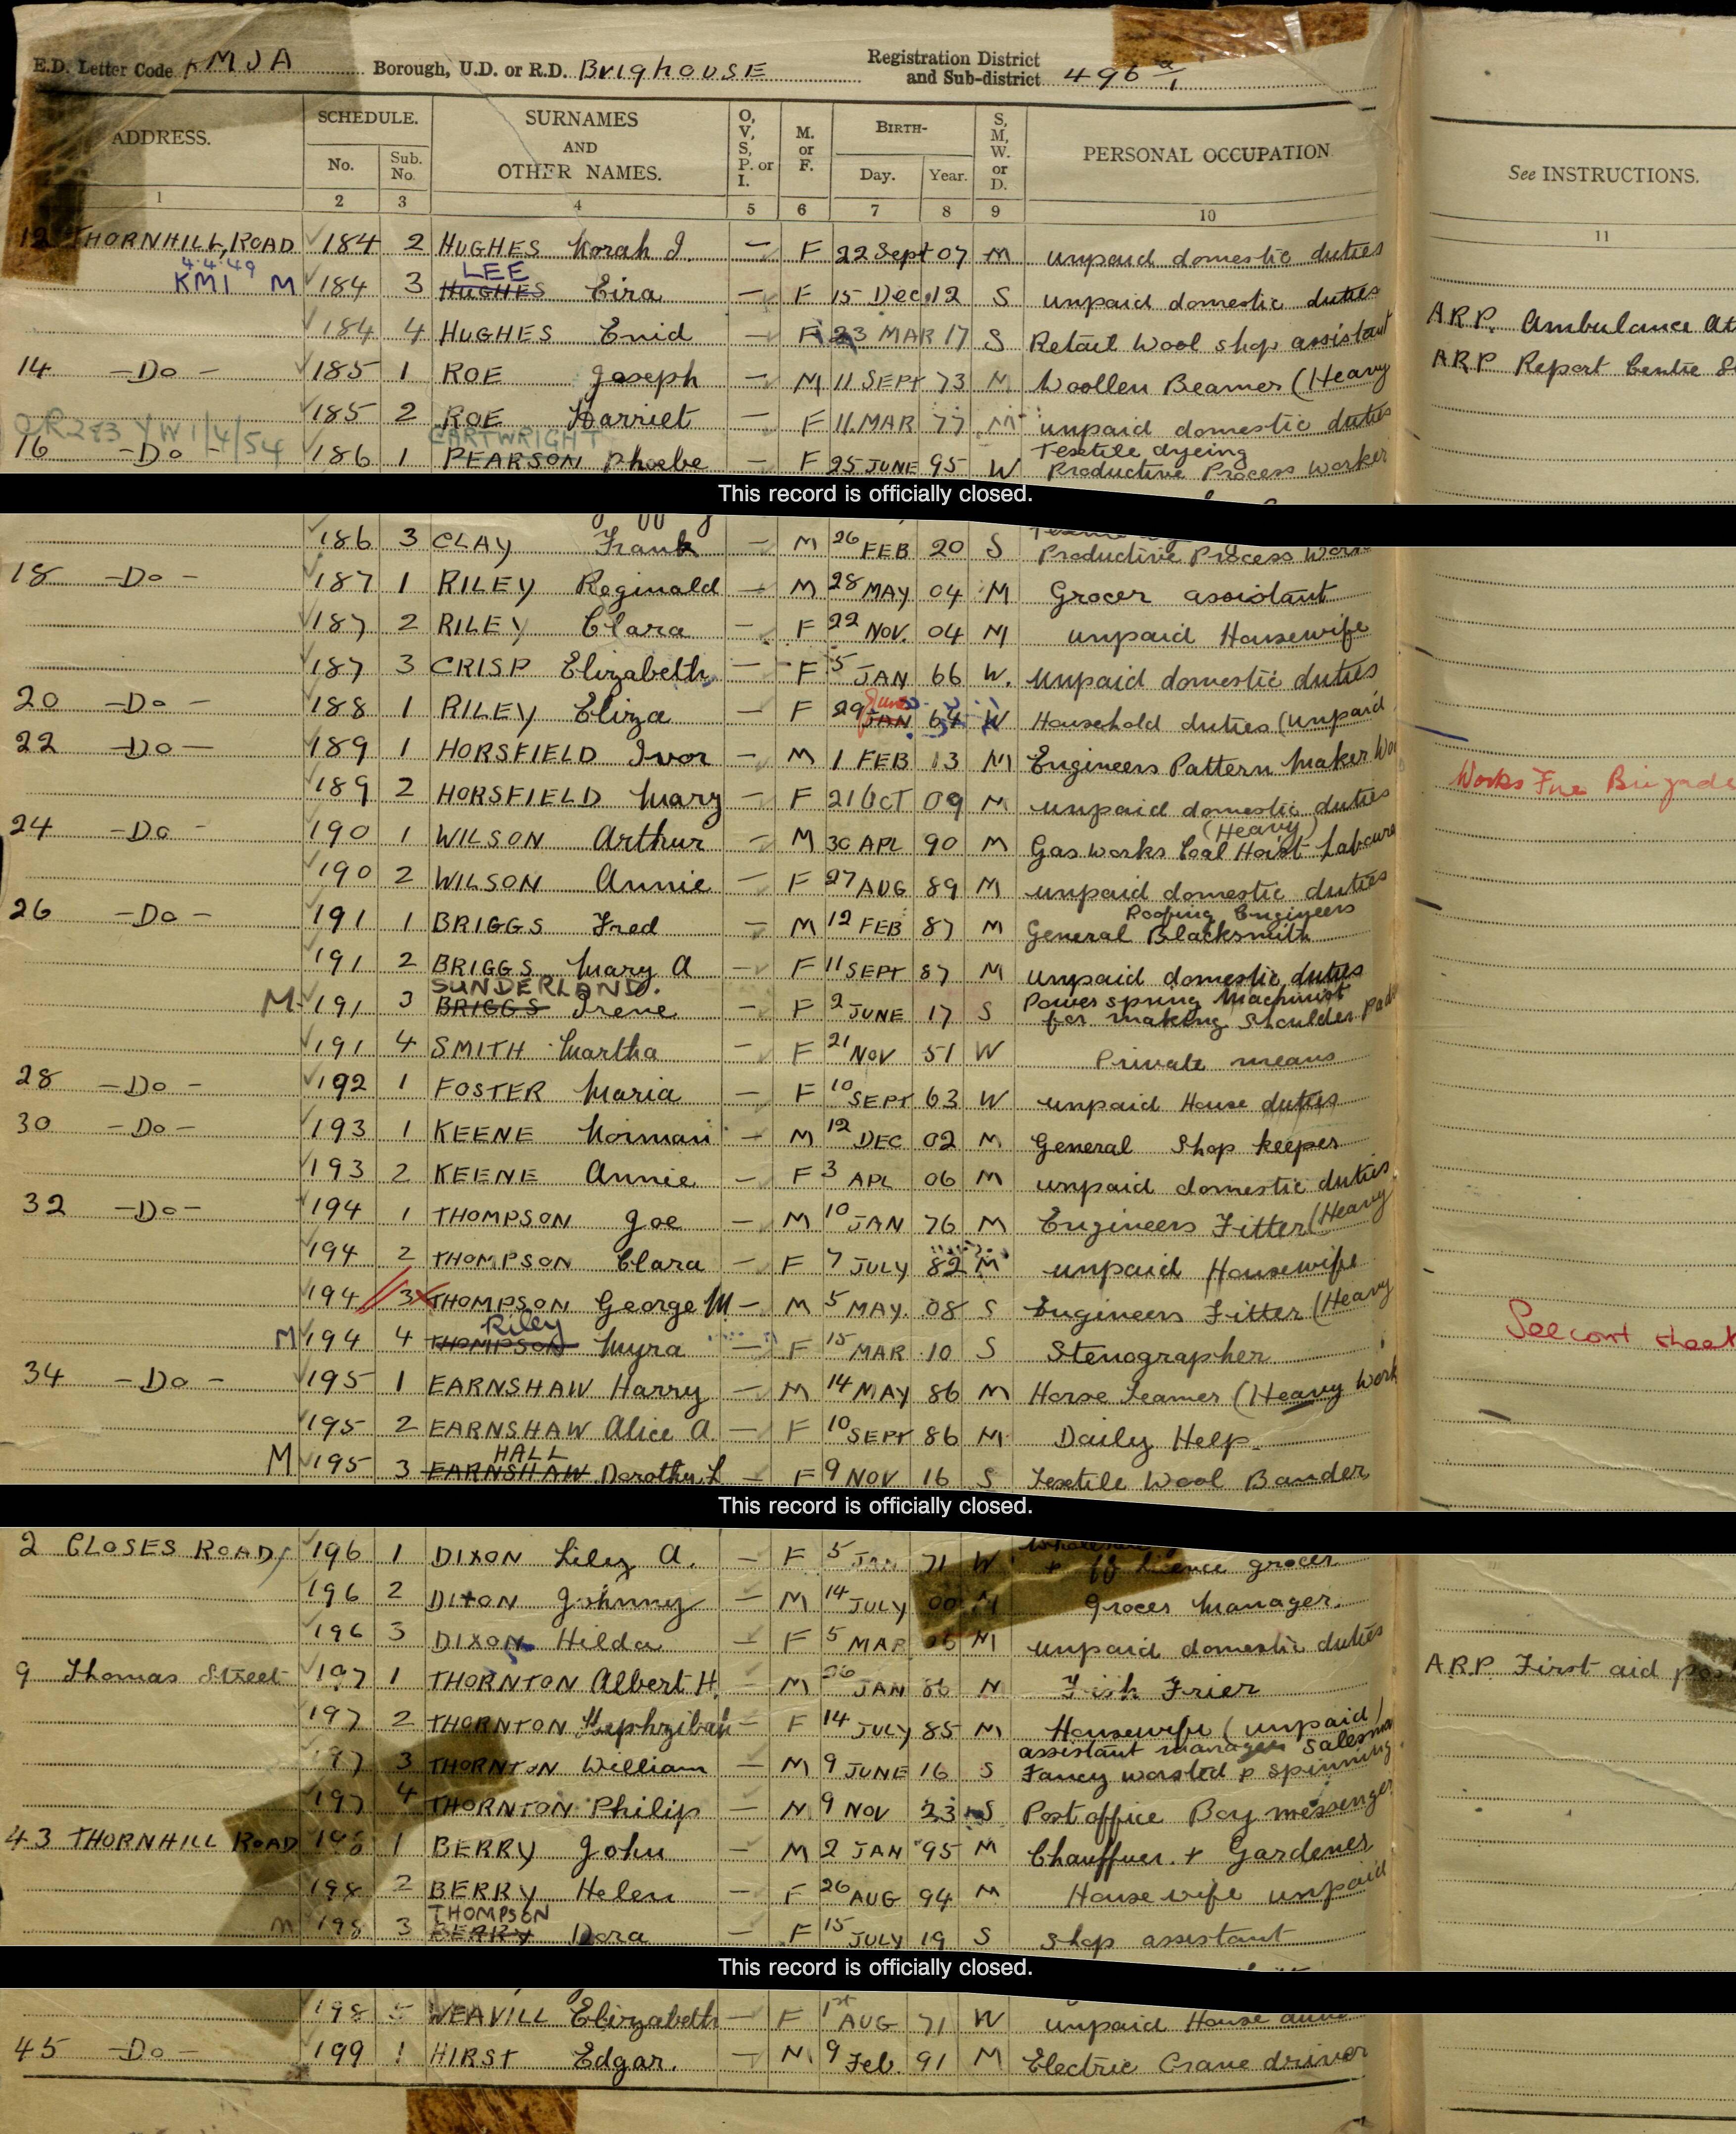 E.D. Letter Code KMJA Borough, U.D. or R.D. BrigHOUSE Registration District and Sub-district 496 2/1
ADDRESS. SCHEDULE. No. Sub. No. SURNAMES AND OTHER NAMES. O, V, S, P. or I. M. or F. BIRTH- Day. Year. S, M, W. or D. PERSONAL OCCUPATION See INSTRUCTIONS.
1 2 3 4 5 6 7 8 9 10 11
12 THORNHILL ROAD 184 2 HUGHES Norah I. — F 22 Sept 07 M unpaid domestic duties
4.4.49 LEE
KM1 M 184 3 HUGHES Eira — F 15 Dec 12 S unpaid domestic duties
184 4 HUGHES Enid — F 23 MAR 17 S Retail Wool shop assistant ARP. Ambulance At
14 —Do— 185 1 ROE Joseph — M 11 SEPT 73 M Woollen Beamer (Heavy ARP Report Centre
185 2 ROE Harriet — F 11 MAR 77 M unpaid domestic duties
OR283 YW1/4/54 CARTWRIGHT Textile dyeing
16 —Do— 186 1 PEARSON Phoebe — F 25 JUNE 95 W Productive Process worker
This record is officially closed.
186 3 CLAY Frank — M 26 FEB 20 S Productive Process Work
18 —Do— 187 1 RILEY Reginald — M 28 MAY 04 M Grocer assistant
187 2 RILEY Clara — F 22 NOV. 04 M unpaid Housewife
187 3 CRISP Elizabeth — F 5 JAN 66 W. unpaid domestic duties
June
20 —Do— 188 1 RILEY Eliza — F 29 JAN 64 W Household duties (unpaid
22 —Do— 189 1 HORSFIELD Ivor — M 1 FEB 13 M Engineers Pattern Maker Woo
189 2 HORSFIELD Mary — F 21 OCT 09 M unpaid domestic duties Works Fire Brigade
(Heavy)
24 —Do— 190 1 WILSON Arthur — M 30 APL 90 M Gas works Coal Hoist Laboure
190 2 WILSON Annie — F 27 AUG 89 M unpaid domestic duties
Roofing Engineers
26 —Do— 191 1 BRIGGS Fred — M 12 FEB 87 M General Blacksmith
191 2 BRIGGS Mary A — F 11 SEPT 87 M unpaid domestic duties
SUNDERLAND. Power spring Machinist
M 191 3 BRIGGS Irene — F 2 JUNE 17 S for making shoulder pads
191 4 SMITH Martha — F 21 NOV 51 W Private means
28 —Do— 192 1 FOSTER Maria — F 10 SEPT 63 W unpaid House duties
30 —Do— 193 1 KEENE Norman — M 12 DEC 02 M General Shop keeper
193 2 KEENE Annie — F 3 APL 06 M unpaid domestic duties
32 —Do— 194 1 THOMPSON Joe — M 10 JAN 76 M Engineers Fitter (Heavy
194 2 THOMPSON Clara — F 7 JULY 82 M unpaid Housewife
194 3 THOMPSON George M — M 5 MAY. 08 S Engineers Fitter (Heavy See cont sheet
Riley
M 194 4 THOMPSON Myra — F 15 MAR 10 S Stenographer
34 —Do— 195 1 EARNSHAW Harry — M 14 MAY 86 M Horse Teamer (Heavy Work
195 2 EARNSHAW Alice A. — F 10 SEPT 86 M Daily Help
HALL
M 195 3 EARNSHAW Dorothy L — F 9 NOV 16 S Textile Wool Bander
This record is officially closed.
2 CLOSES ROAD 196 1 DIXON Lily A. — F 5 JAN 71 W + off licence grocer
196 2 DIXON Johnny — M 14 JULY 00 M Grocer Manager.
196 3 DIXON Hilda — F 5 MAR 06 M unpaid domestic duties
9 Thomas Street 197 1 THORNTON Albert H. — M 26 JAN 86 M Fish Frier A.R.P. First aid
197 2 THORNTON Hephzibah — F 14 JULY 85 M Housewife (unpaid)
assistant manager Salesman
197 3 THORNTON William — M 9 JUNE 16 S Fancy worsted spinning
197 4 THORNTON Philip — M 9 NOV 23 S Post office Boy messenger
43 THORNHILL ROAD 198 1 BERRY John — M 2 JAN 95 M Chauffuer. + Gardener
198 2 BERRY Helen — F 26 AUG 94 M Housewife unpaid
THOMPSON
M 198 3 BERRY Dora — F 15 JULY 19 S Shop assistant
This record is officially closed.
198 5 WEAVILL Elizabeth — F 1st AUG 71 W unpaid House
45 —Do— 199 1 HIRST Edgar. — M. 9 Feb. 91 M Electric Crane driver